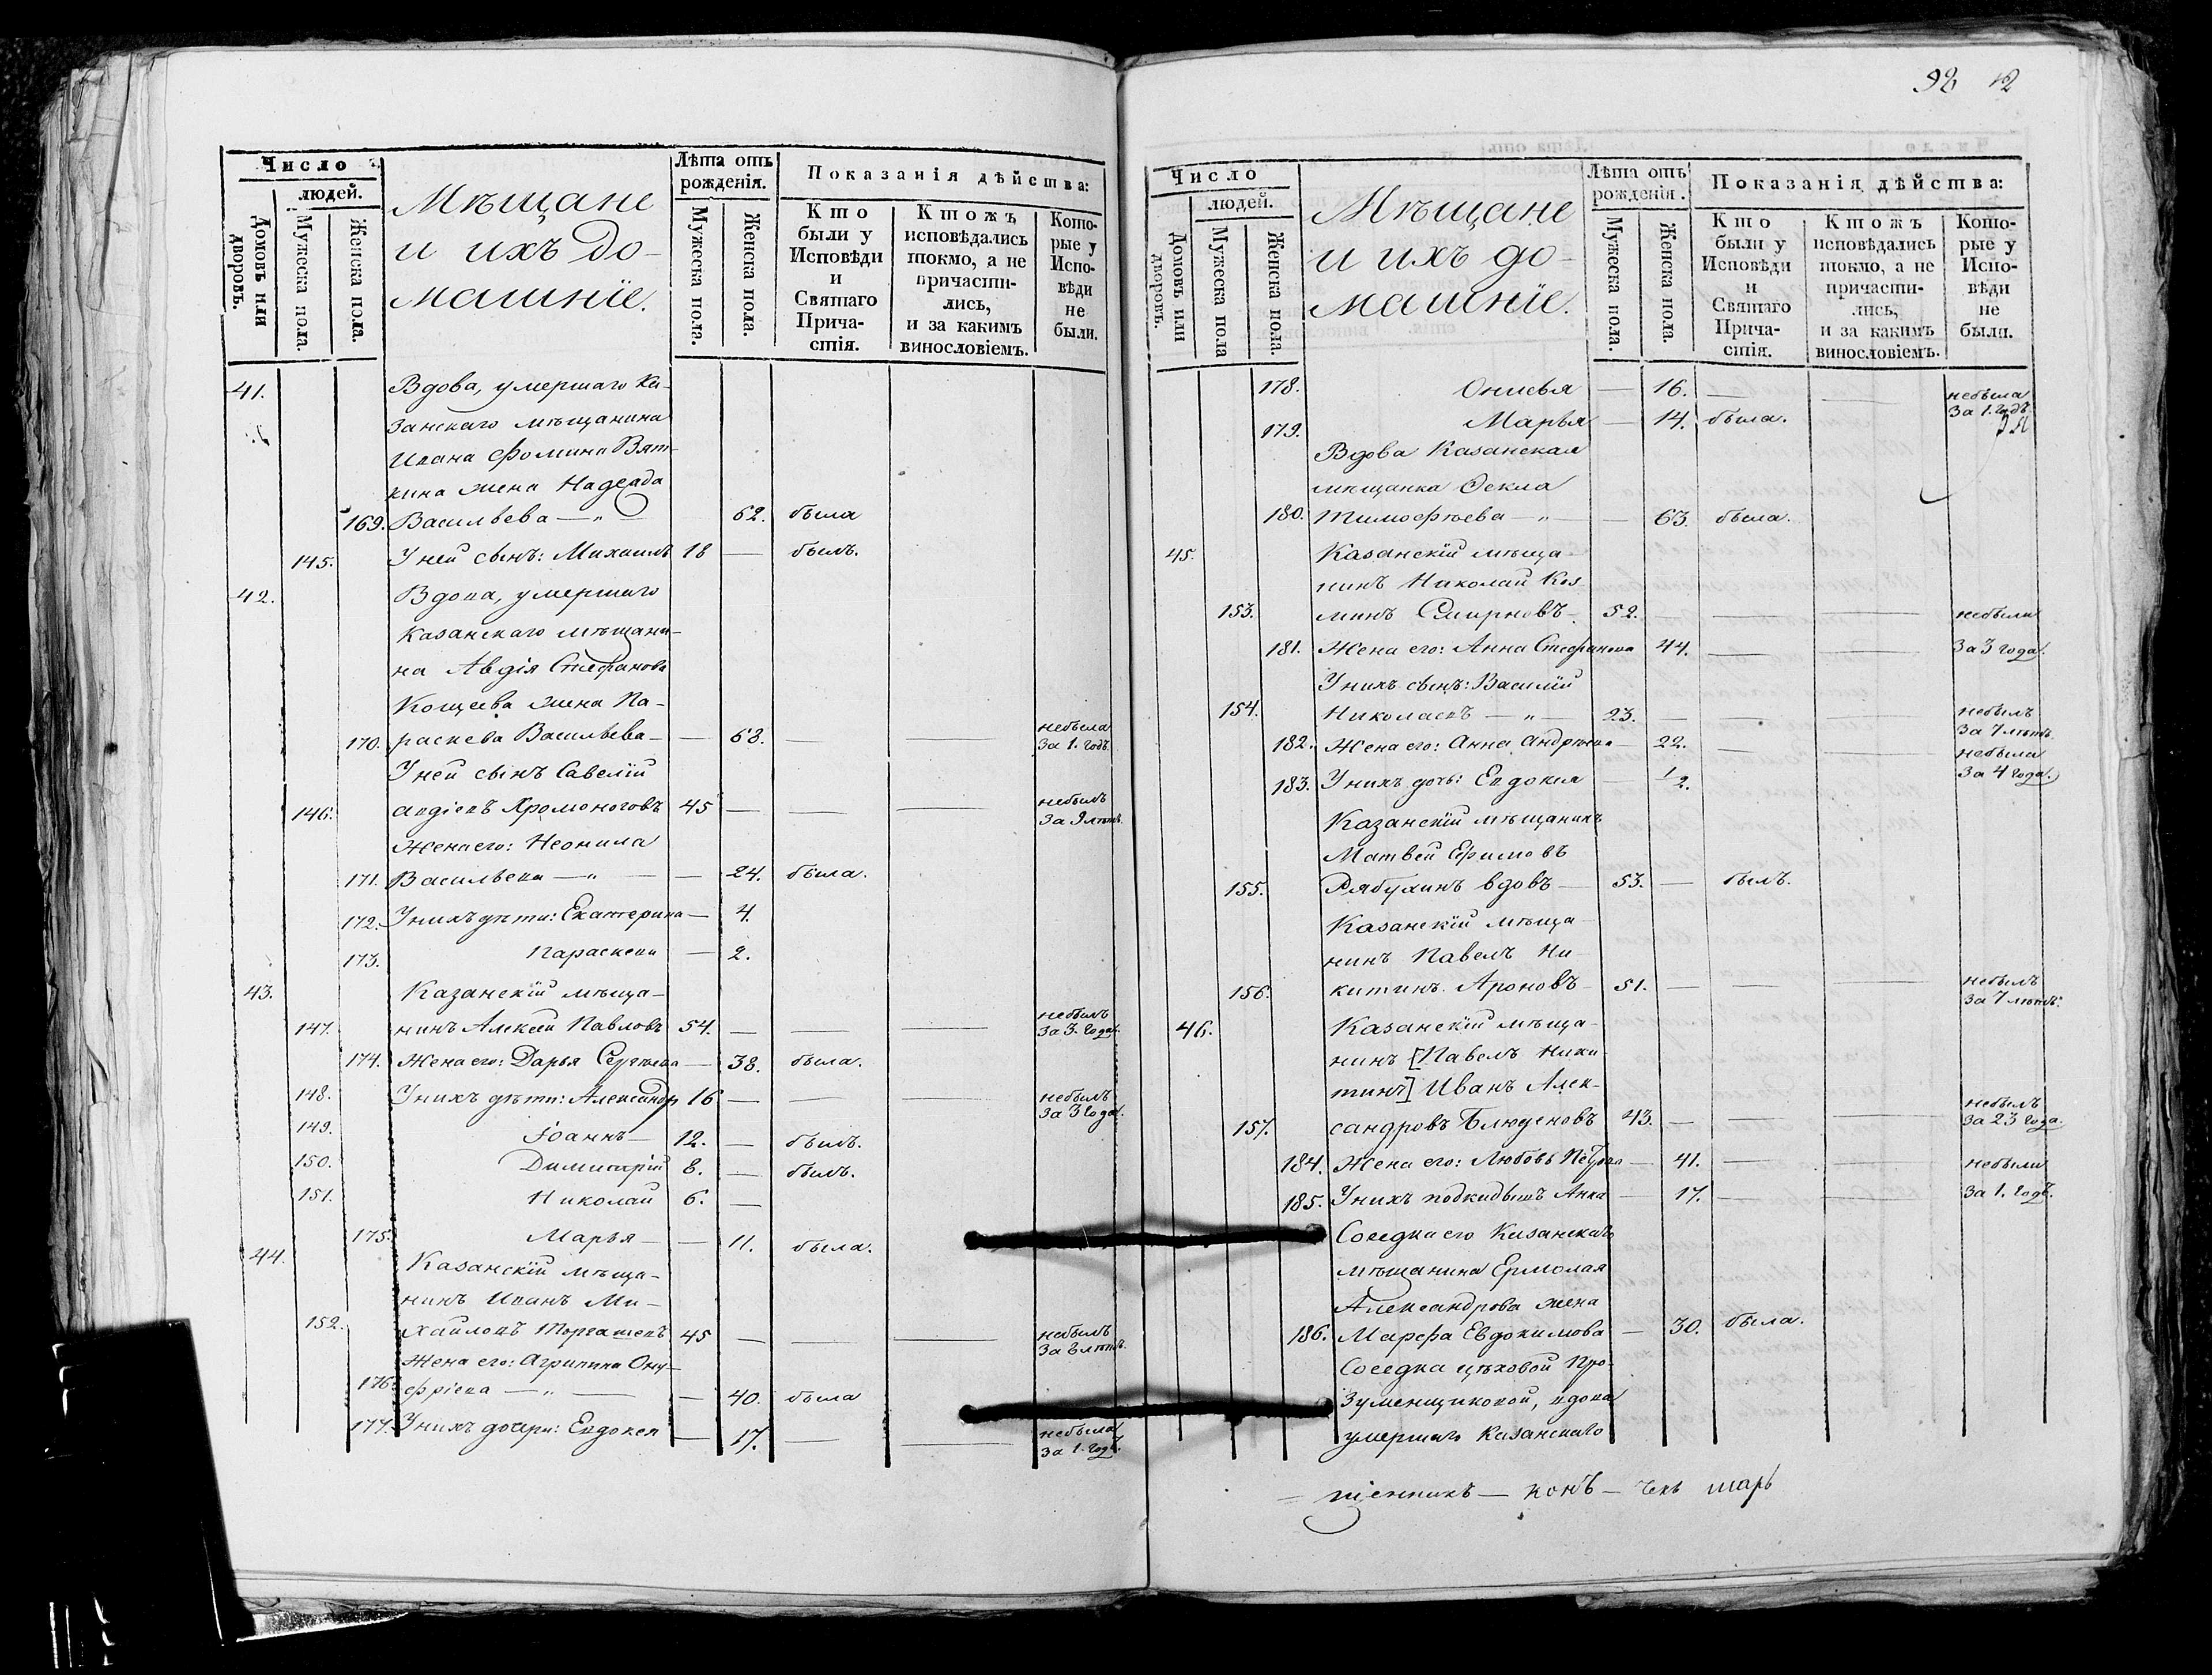 Число
людей.
Домовъ или дворовъ.
Мужеска пола.
Женска пола.
Мѣщане
и ихъ до-
машніе.
Лѣта отъ рожденія.
Мужеска пола.
Женска пола.
Показанія дѣйства:
Кто были у Исповѣди и Святаго Причастія.
Ктожъ исповѣдались токмо, а не причастились, и за какимъ винословіемъ.
Которые у Исповѣди не были.
41. Вдова, умершаго Ка-
занскаго мѣщанина
Ивана Фомина Вят-
кина жена Надежда
169. Васильева — „ — 62. была
145. У ней сынъ: Михаилъ 18 — былъ.
42. Вдова, умершаго
Казанскаго мѣщани-
на Авдія Стефанова
Кощеева жена Па-
170. раскева Васильева — — 68. — — небыла за 1. годъ.
У ней сынъ Савелій
146. Авдіевъ Хромоноговъ 45 — — — небылъ за 9 лѣтъ.
Жена его: Неонила
171. Васильева — „ — — 24. была.
172. У нихъ дѣти: Екатерина — 4.
173. Параскева — 2.
43. Казанскій мѣща-
147. нинъ Алексѣй Павловъ 54. — — — небылъ за 3. года.
174. Жена его: Дарья Сергѣева — 38. была.
148. У нихъ дѣти: Александръ 16 — — — небылъ за 3 года.
149. Іоаннъ — 12. — былъ.
150. Димитрій 8. — былъ.
151. Николай 6. —
175. Марья — — 11. была.
44. Казанскій мѣща-
нинъ Иванъ Ми-
152. хайловъ Торгашевъ 45 — — — небылъ за 8 лѣтъ.
Жена его: Агрипина Ону-
176. фріева — „ — — 40. была
177. У нихъ дочери: Евдокея — 17. — — небыла за 1. годъ.
98 12
Число
людей.
Домовъ или дворовъ.
Мужеска пола
Женска пола.
Мѣщане
и ихъ до-
машніе.
Лѣта отъ рожденія.
Мужеска пола.
Женска пола.
Показанія дѣйства:
Кто были у Исповѣди и Святаго Причастія.
Ктожъ исповѣдались токмо, а не причастились, и за какимъ винословіемъ.
Которые у Исповѣди не были.
178. Онисья — 16. — — небыла за 1. годъ.
179. Марья — 14. была.
Вдова Казанская
мѣщанка Ѳекла
180. Тимофѣева — „ — — 63. была.
45. Казанскій мѣща-
нинъ Николай Коз-
153. минъ Смирновъ 52. — — — небыли
181. Жена его: Анна Стефанова 44. — — за 3 года.
У нихъ сынъ: Василій
154. Николаевъ — „ — 23. — — — небылъ за 7 лѣтъ.
182. Жена его: Анна Андрѣева — 22. — — небыла за 4 года.
183. У нихъ дочь: Евдокея — 1/2.
Казанскій мѣщанинъ
Матвей Ефимовъ
155. Рябухинъ вдовъ — 53. — былъ.
Казанскій мѣща-
нинъ Павелъ Ни-
156. китинъ Ароновъ 51. — — — небылъ за 7 лѣтъ.
46. Казанскій мѣща-
нинъ [Павелъ Ники-
тинъ] Иванъ Алек-
157. сандровъ Блюденовъ 43. — — — небылъ за 23 года.
184. Жена его: Любовь Петрова — 41. — — небыли
185. У нихъ подкидышъ Анна — 17. — — за 1. годъ.
Соседка его Казанскаго
мѣщанина Ермолая
Александрова жена
186. Марфа Евдокимова — 30. была.
Соседка цѣховой Про-
зуменщиковой, вдова
умершаго Казанскаго
— щенникъ —